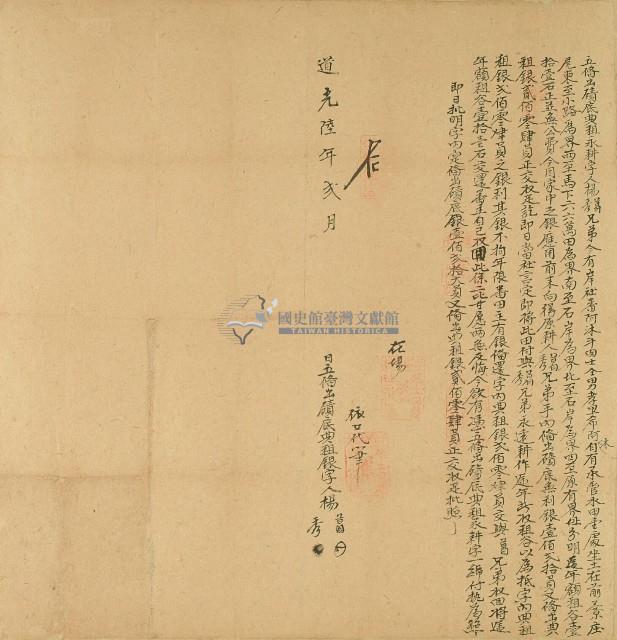 立備出磧底典租永耕字人楊 兄弟今有岸社番阿沐斗肉士仝男孝里希阿 有承管水田壹處坐土在前 庄
尾東至小路為界西至馬下六六萬田為界南至石岸為界北至石岸為界四至原有界址分明遞年額租谷壹
拾壹石正並無公費今因家中乏銀應用前來向楊原耕人 兄弟手內備出磧底無利銀壹佰弍拾員又備出典
租銀貳佰零肆員正交收足訖即日當社言定即將此田付與 兄弟永遠耕作遞年所收租谷以為抵字內典租
租銀弍佰零肆員之銀利其銀不拘年限番田主有銀備還字內典租銀弍佰零肆員交與 兄弟收回將遞
年額租谷壹拾壹石交還番主自己收 此係二比甘愿兩無反悔今欲有憑立備出磧底典租永耕字一紙付執為照
即日批明字內定備出磧底銀壹佰弍拾大員又備出典租銀貳佰零肆員正交收足批照
在場
依口代筆
道光陸年弍月
日立備出磧底典租銀字人楊
秀
國史館臺灣文獻館
TAIWAN HISTORICA